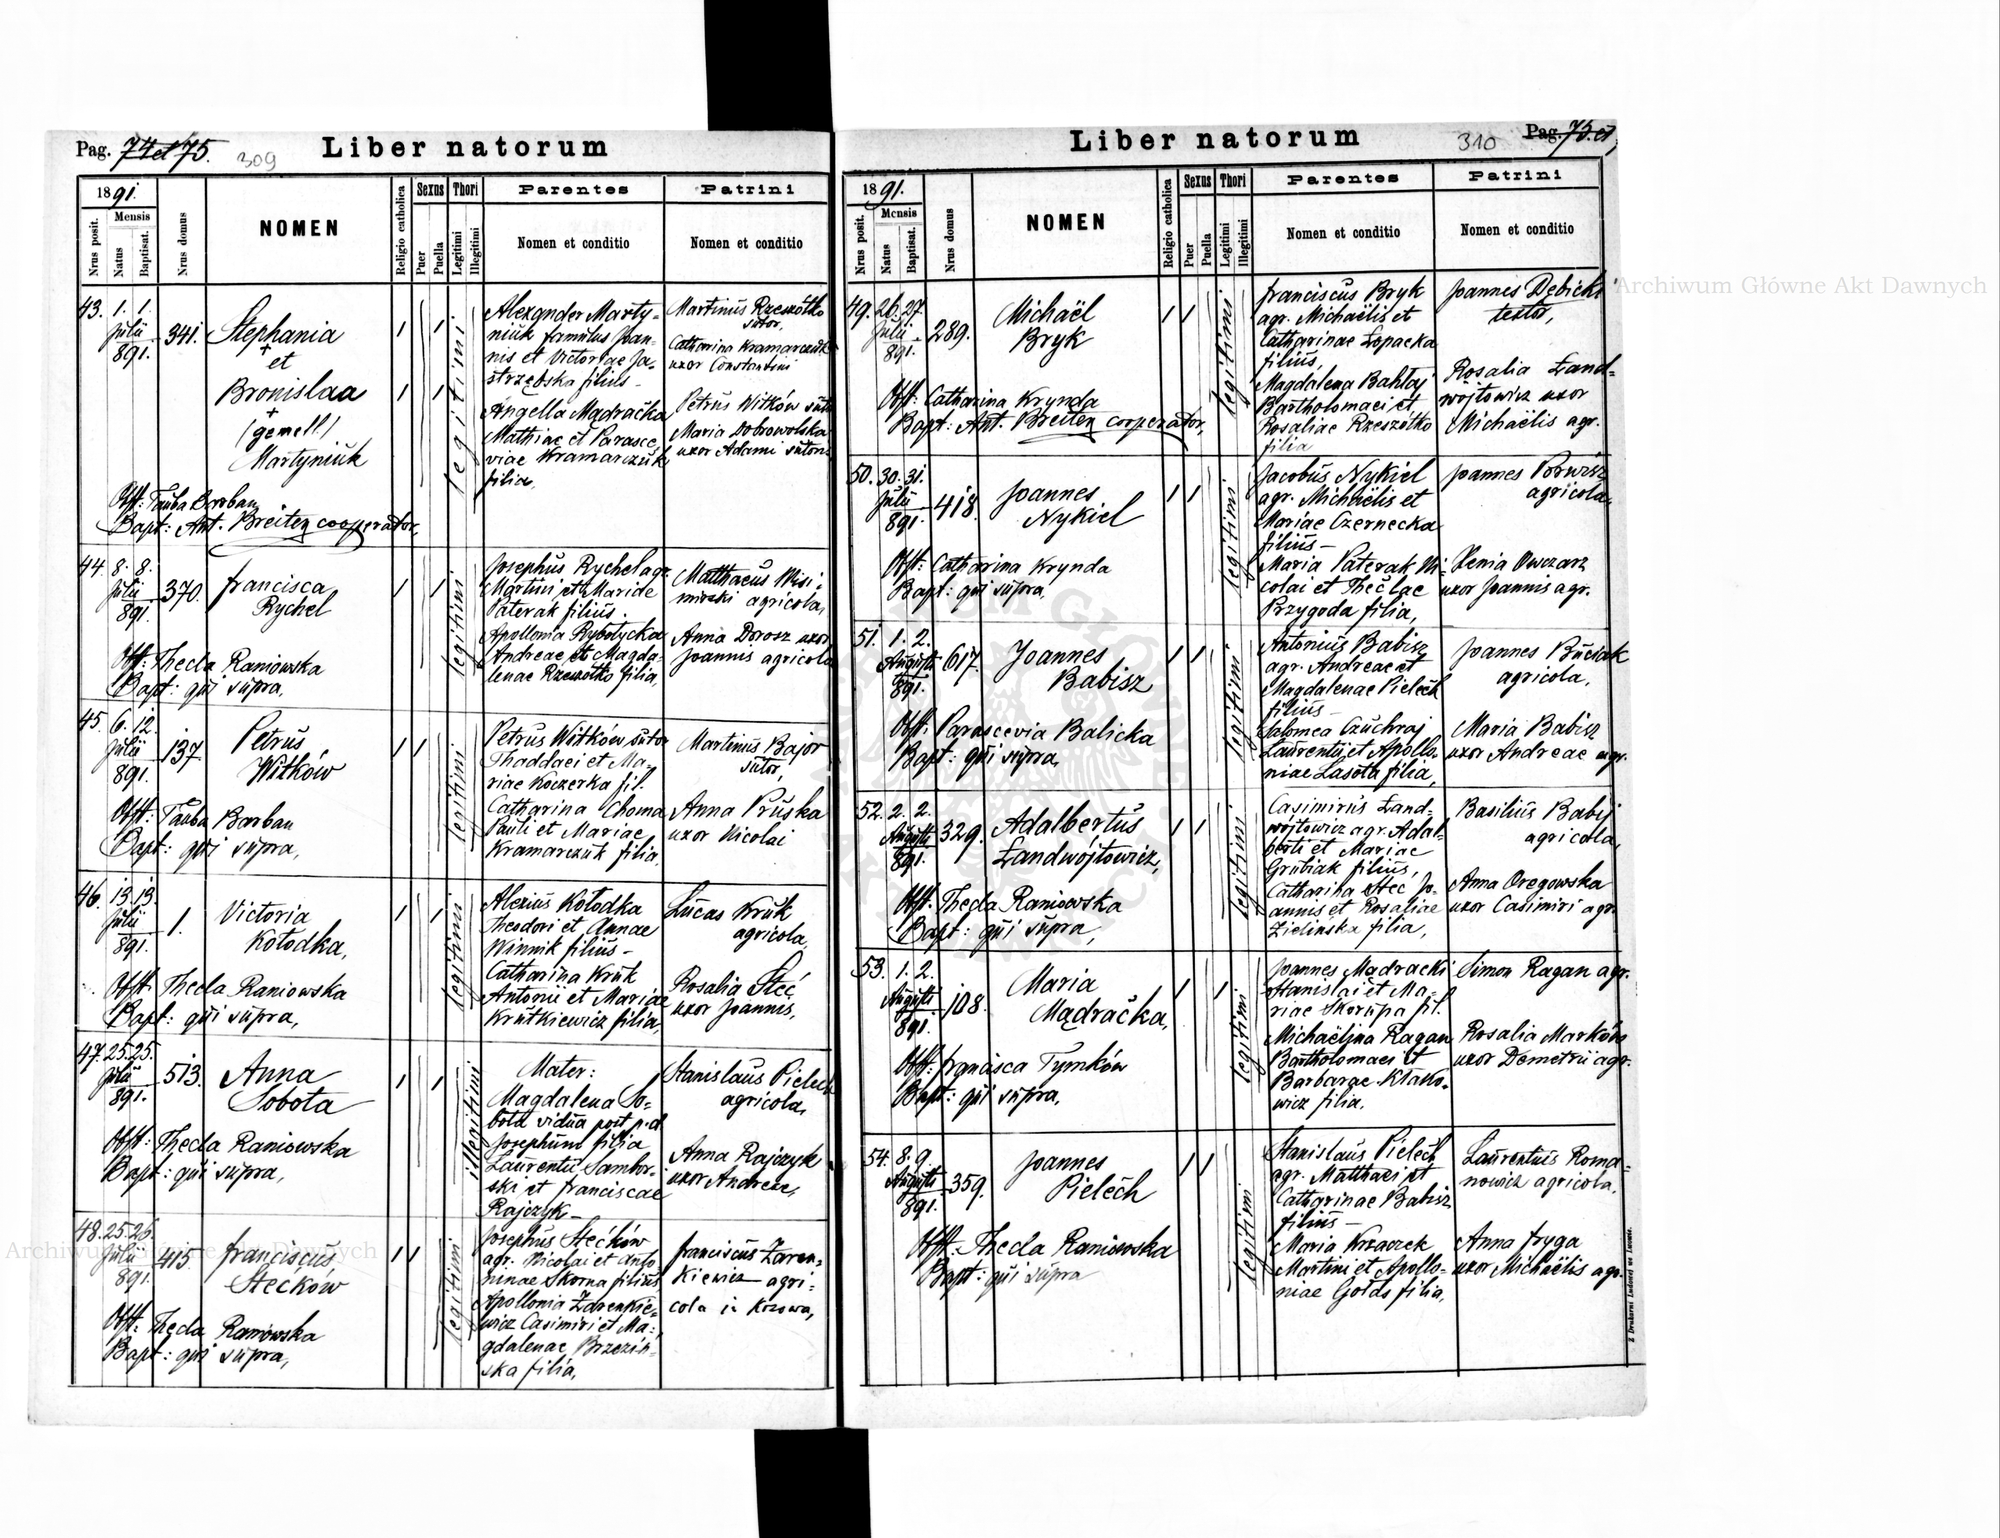 Pag. 74 et 75. 309 Liber natorum
1891.
Nrus posit.
Mensis
Natus
Baptisat.
Nrus domus
NOMEN
Religio catholica
Sexus
Puer
Puella
Thori
Legitimi
Illegitimi
Parentes
Nomen et conditio
Patrini
Nomen et conditio
43. 1. 1.
Julii
891.
341.
Stephania
+
et
Bronislaa
+
(gemell)
Martyniuk
legitimi
Alexander Marty-
niuk famulus Joan-
nis et Victoriae Ja-
strzębska filius -
Angella Mądračka
Mathiae et Parasce
viae Kramarczuk
filia.
Martinus Rzeszótko
sutor,
Catharina Kramarczuk
uxor Constantini
Petrus Witków
Maria Dobrowolska
uxor Adami sutoris
Obst: Tauba Barban
Bapt: Ant. Breiter cooperator,
44. 8. 8.
Julii
891.
370.
Francisca
Rychel
legitimi
Josephus Rychel agr.
Martini et Mariae
Paterak filius.
Apollonia Rybotycka
Andreae et Magda-
lenae Rzeszótko filia,
Matthaeus Wisi-
mirski agricola,
Anna Dorosz uxor
Joannis agricola
Obst: Thecla Raniowska
Bapt: qui supra,
45. 6. 12.
Julii
891.
137.
Petrus
Witków
legitimi
Petrus Witków sutor
Thaddaei et Ma-
riae Koczerka fil.
Catharina Choma
Pauli et Mariae
Kramarczuk filia,
Martinus Bajor
sutor,
Anna Pruska
uxor Nicolai
Obst: Tauba Barban
Bapt: qui supra,
46. 13. 13.
Julii
891.
1.
Victoria
Kołodka,
legitimi
Alexius Kołodka
Theodori et Annae
Winnik filius -
Catharina Kruk
Antonii et Mariae
Krutkiewicz filia,
Lucas Kruk
agricola,
Rosalia Steć
uxor Joannis,
Obst: Thecla Raniowska
Bapt: qui supra,
47. 25. 25.
Julii
891.
513.
Anna
Sobota
illegitimi
Mater:
Magdalena So-
bota vidua post p.d.
Josephum filia
Laurentii Sambor-
ski et Franciscae
Rajczyk -
Stanislaus Pielech
agricola,
Anna Rajczyk
uxor Andreae,
Obst: Thecla Raniowska
Bapt: qui supra,
48. 25. 26.
Julii
891.
415
Franciscus
Stećków
legitimi
Josephus Stećków
agr. Nicolai et Anto
ninae Skorna filius
Apollonia Zarenkie-
wicz Casimiri et Ma-
gdalenae Brzeziń-
ska filia,
Franciscus Zaren-
kiewicz agri-
cola in Kozowa,
Obst: Thecla Raniowska
Bapt: qui supra,
Liber natorum 310 Pag. 75. et
1891.
Nrus posit.
Mensis
Natus
Baptisat.
Nrus domus
NOMEN
Religio catholica
Sexus
Puer
Puella
Thori
Legitimi
Illegitimi
Parentes
Nomen et conditio
Patrini
Nomen et conditio
49. 26. 27.
Julii
891.
289.
Michaël
Bryk
legitimi
Franciscus Bryk
agr. Michaëlis et
Catharinae Łopacka
filius,
Magdalena Bahłaj
Bartholomaei et
Rosaliae Rzeszótko
filia
Joannes Dębicki
textor,
Rosalia Land-
wójtowicz uxor
Michaëlis agr.
Obst: Catharina Krynda
Bapt: Ant. Breiter cooperator,
50. 30. 31.
Julii
891.
418.
Joannes
Nykiel
legitimi
Jacobus Nykiel
agr. Michaëlis et
Mariae Czernecka
filius -
Maria Paterak Ni-
colai et Theclae
Przygoda filia,
Joannes Porwisz
agricola,
Xenia Owczarz
uxor Joannis agr.
Obst: Catharina Krynda
Bapt: qui supra,
51. 1. 2.
Augusti
891.
617.
Joannes
Babisz
legitimi
Antonius Babisz
agr. Andreae et
Magdalenae Pielech
filius -
Salomea Czuchraj
Laurentii et Apollo-
niae Lasota filia,
Joannes Buciak
agricola,
Maria Babisz
uxor Andreae agr.
Obst: Parascevia Balicka
Bapt: qui supra,
52. 2. 2.
Augusti
891.
329.
Adalbertus
Landwójtowicz,
legitimi
Casimirus Land-
wójtowicz agr. Adal-
berti et Mariae
Grubiak filius,
Catharina Stec Jo-
annis et Rosaliae
Zielinska filia,
Basilius Babij
agricola,
Anna Oregowska
uxor Casimiri agr.
Obst: Thecla Raniowska
Bapt: qui supra,
53. 1. 2.
Augusti
891.
108.
Maria
Mądračka,
legitimi
Joannes Mądracki
Stanislai et Ma-
riae Skorupa fil.
Michaëlina Ragan
Bartholomaei et
Barbarae Kłako-
wicz filia,
Simon Ragan agr.
Rosalia Marków
uxor Demetrii agr.
Obst: Francisca Tymków
Bapt: qui supra,
54. 8. 9.
Augusti
891.
359.
Joannes
Pielech
legitimi
Stanislaus Pielech
agr. Matthaei et
Catharinae Babisz
filius -
Maria Krzaczek
Martini et Apollo-
niae Gołds filia,
Laurentius Roma-
nowicz agricola,
Anna Fryga
uxor Michaëlis agr.
Obst: Thecla Raniowska
Bapt: qui supra
Z Drukarni Ludowej we Lwowie.
Archiwum Główne Akt Dawnych
Archiwum Główne Akt Dawnych